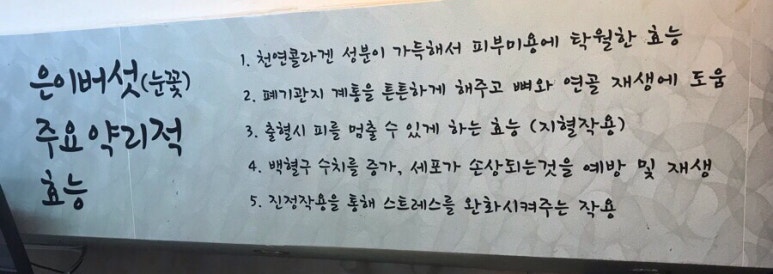 은이버섯(눈꽃)
주요약리적
효능
1. 천연콜라겐 성분이 가득해서 피부미용에 탁월한 효능
2. 폐기관지 계통을 튼튼하게 해주고 뼈와 연골 재생에 도움
3. 출혈시 피를 멈출 수 있게 하는 효능 (지혈작용)
4. 백혈구 수치를 증가, 세포가 손상되는것을 예방 및 재생
5. 진정작용을 통해 스트레스를 완화시켜주는 작용